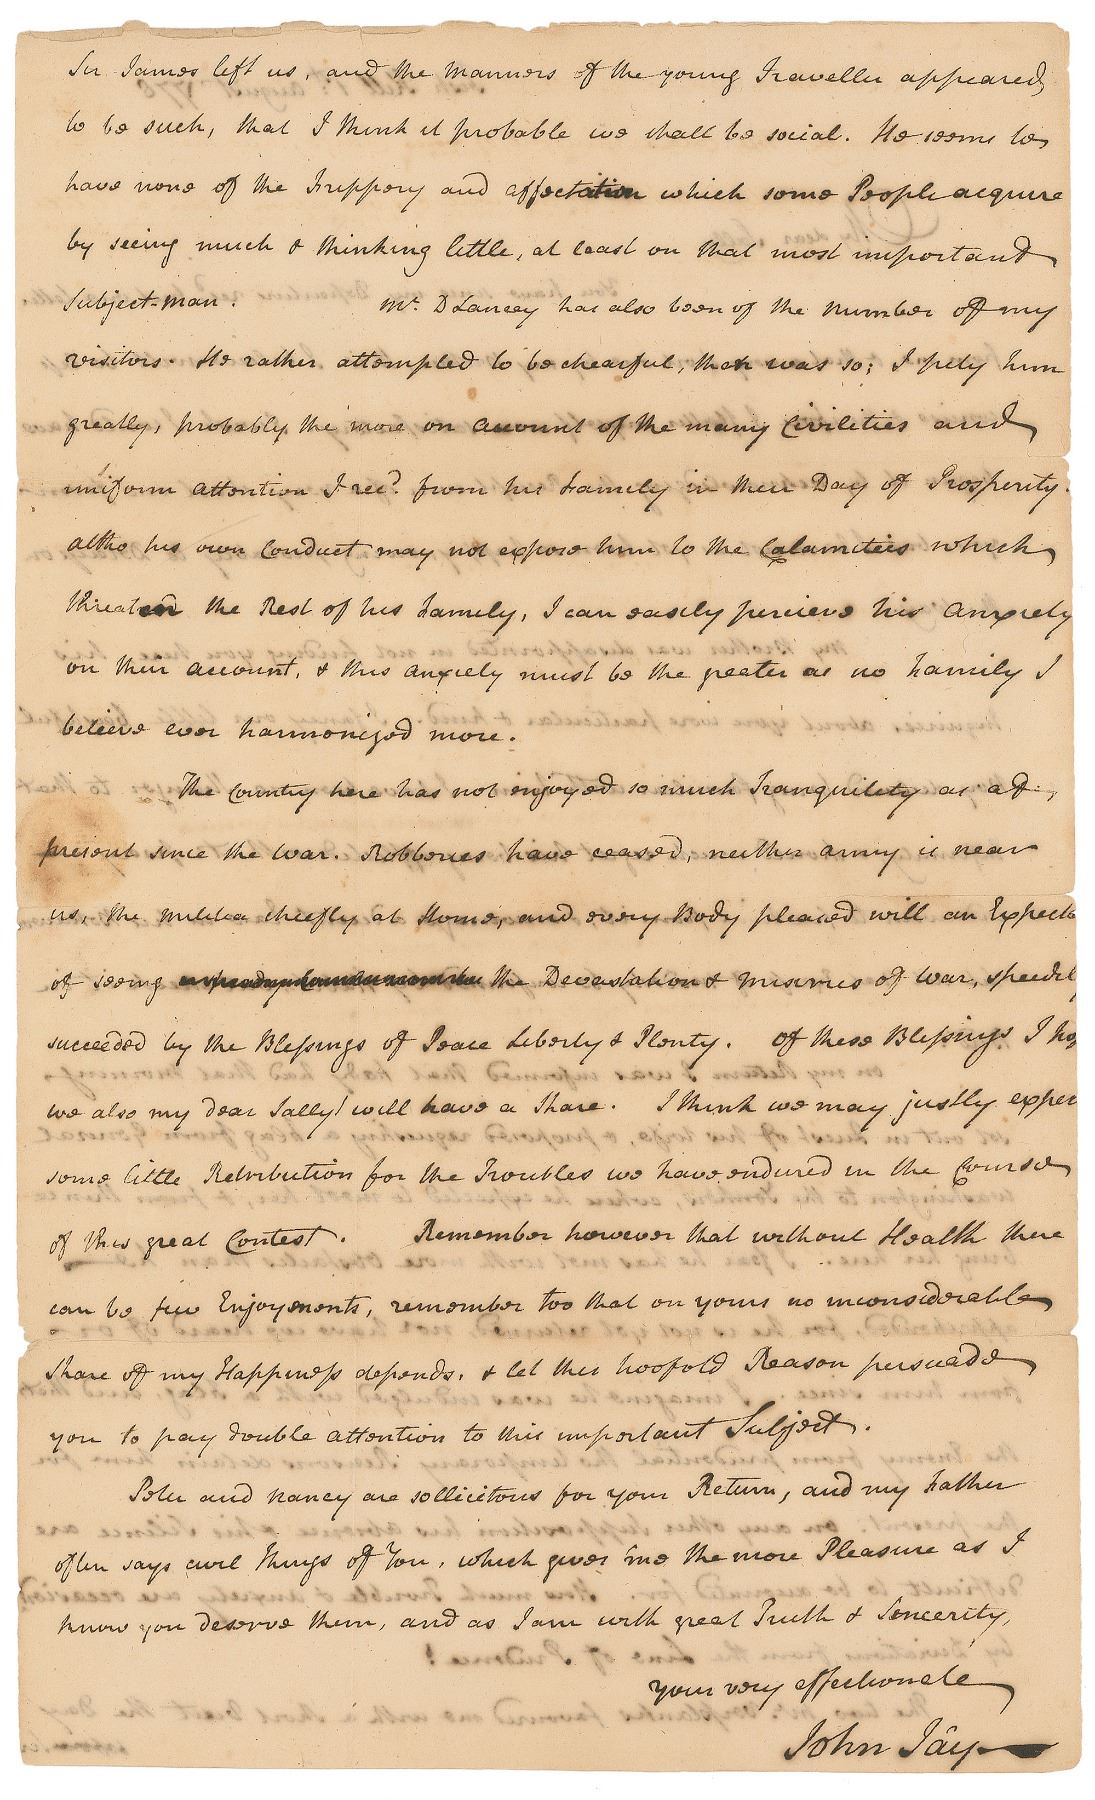 Sir James left us, and the manners of the young Traveller appeared
to be such, that I think it probable we shall be social. He seems to
have none of the Frippery and affectation which some People acquire
by seeing much & thinking little, at least on that most important
Subject-man. Mr. DLancey has also been of the number of my
visitors. He rather attempted to be chearful, than was so; I pity him
greatly, probably the more on account of the many Civilities and
uniform attention I recd. from his Family in their Day of Prosperity.
altho his own Conduct may not expose him to the Calamities which
threaten the Rest of his Family, I can easily percieve his anxiety
on their account, & this anxiety must be the greater as no Family I
believe ever harmonized more.
The Country here has not enjoyed so much Tranquility as at
present since the War. Robberies have ceased, neither army is near
us, the militia chiefly at Home, and every Body pleased with an Expecta
of seeing the Devastation & miseries of War, speedil
succeeded by the Blessings of Peace Liberty & Plenty. Of these Blessings I hop
we also my dear Sally! will have a Share. I think we may justly expec
some little Retribution for the Troubles we have endured in the Course
of this great Contest. Remember however that without Health there
can be few Enjoyments, remember too that on yours no inconsiderable
Share of my Happiness depends, & let this twofold Reason persuade
you to pay double attention to this important Subject.
Peter and Nancy are sollicitous for your Return, and my Father
often says civil Things of You, which gives me the more Pleasure as I
know you deserve them, and as I am with great Truth & Sincerity,
your very affectionate
John Jay